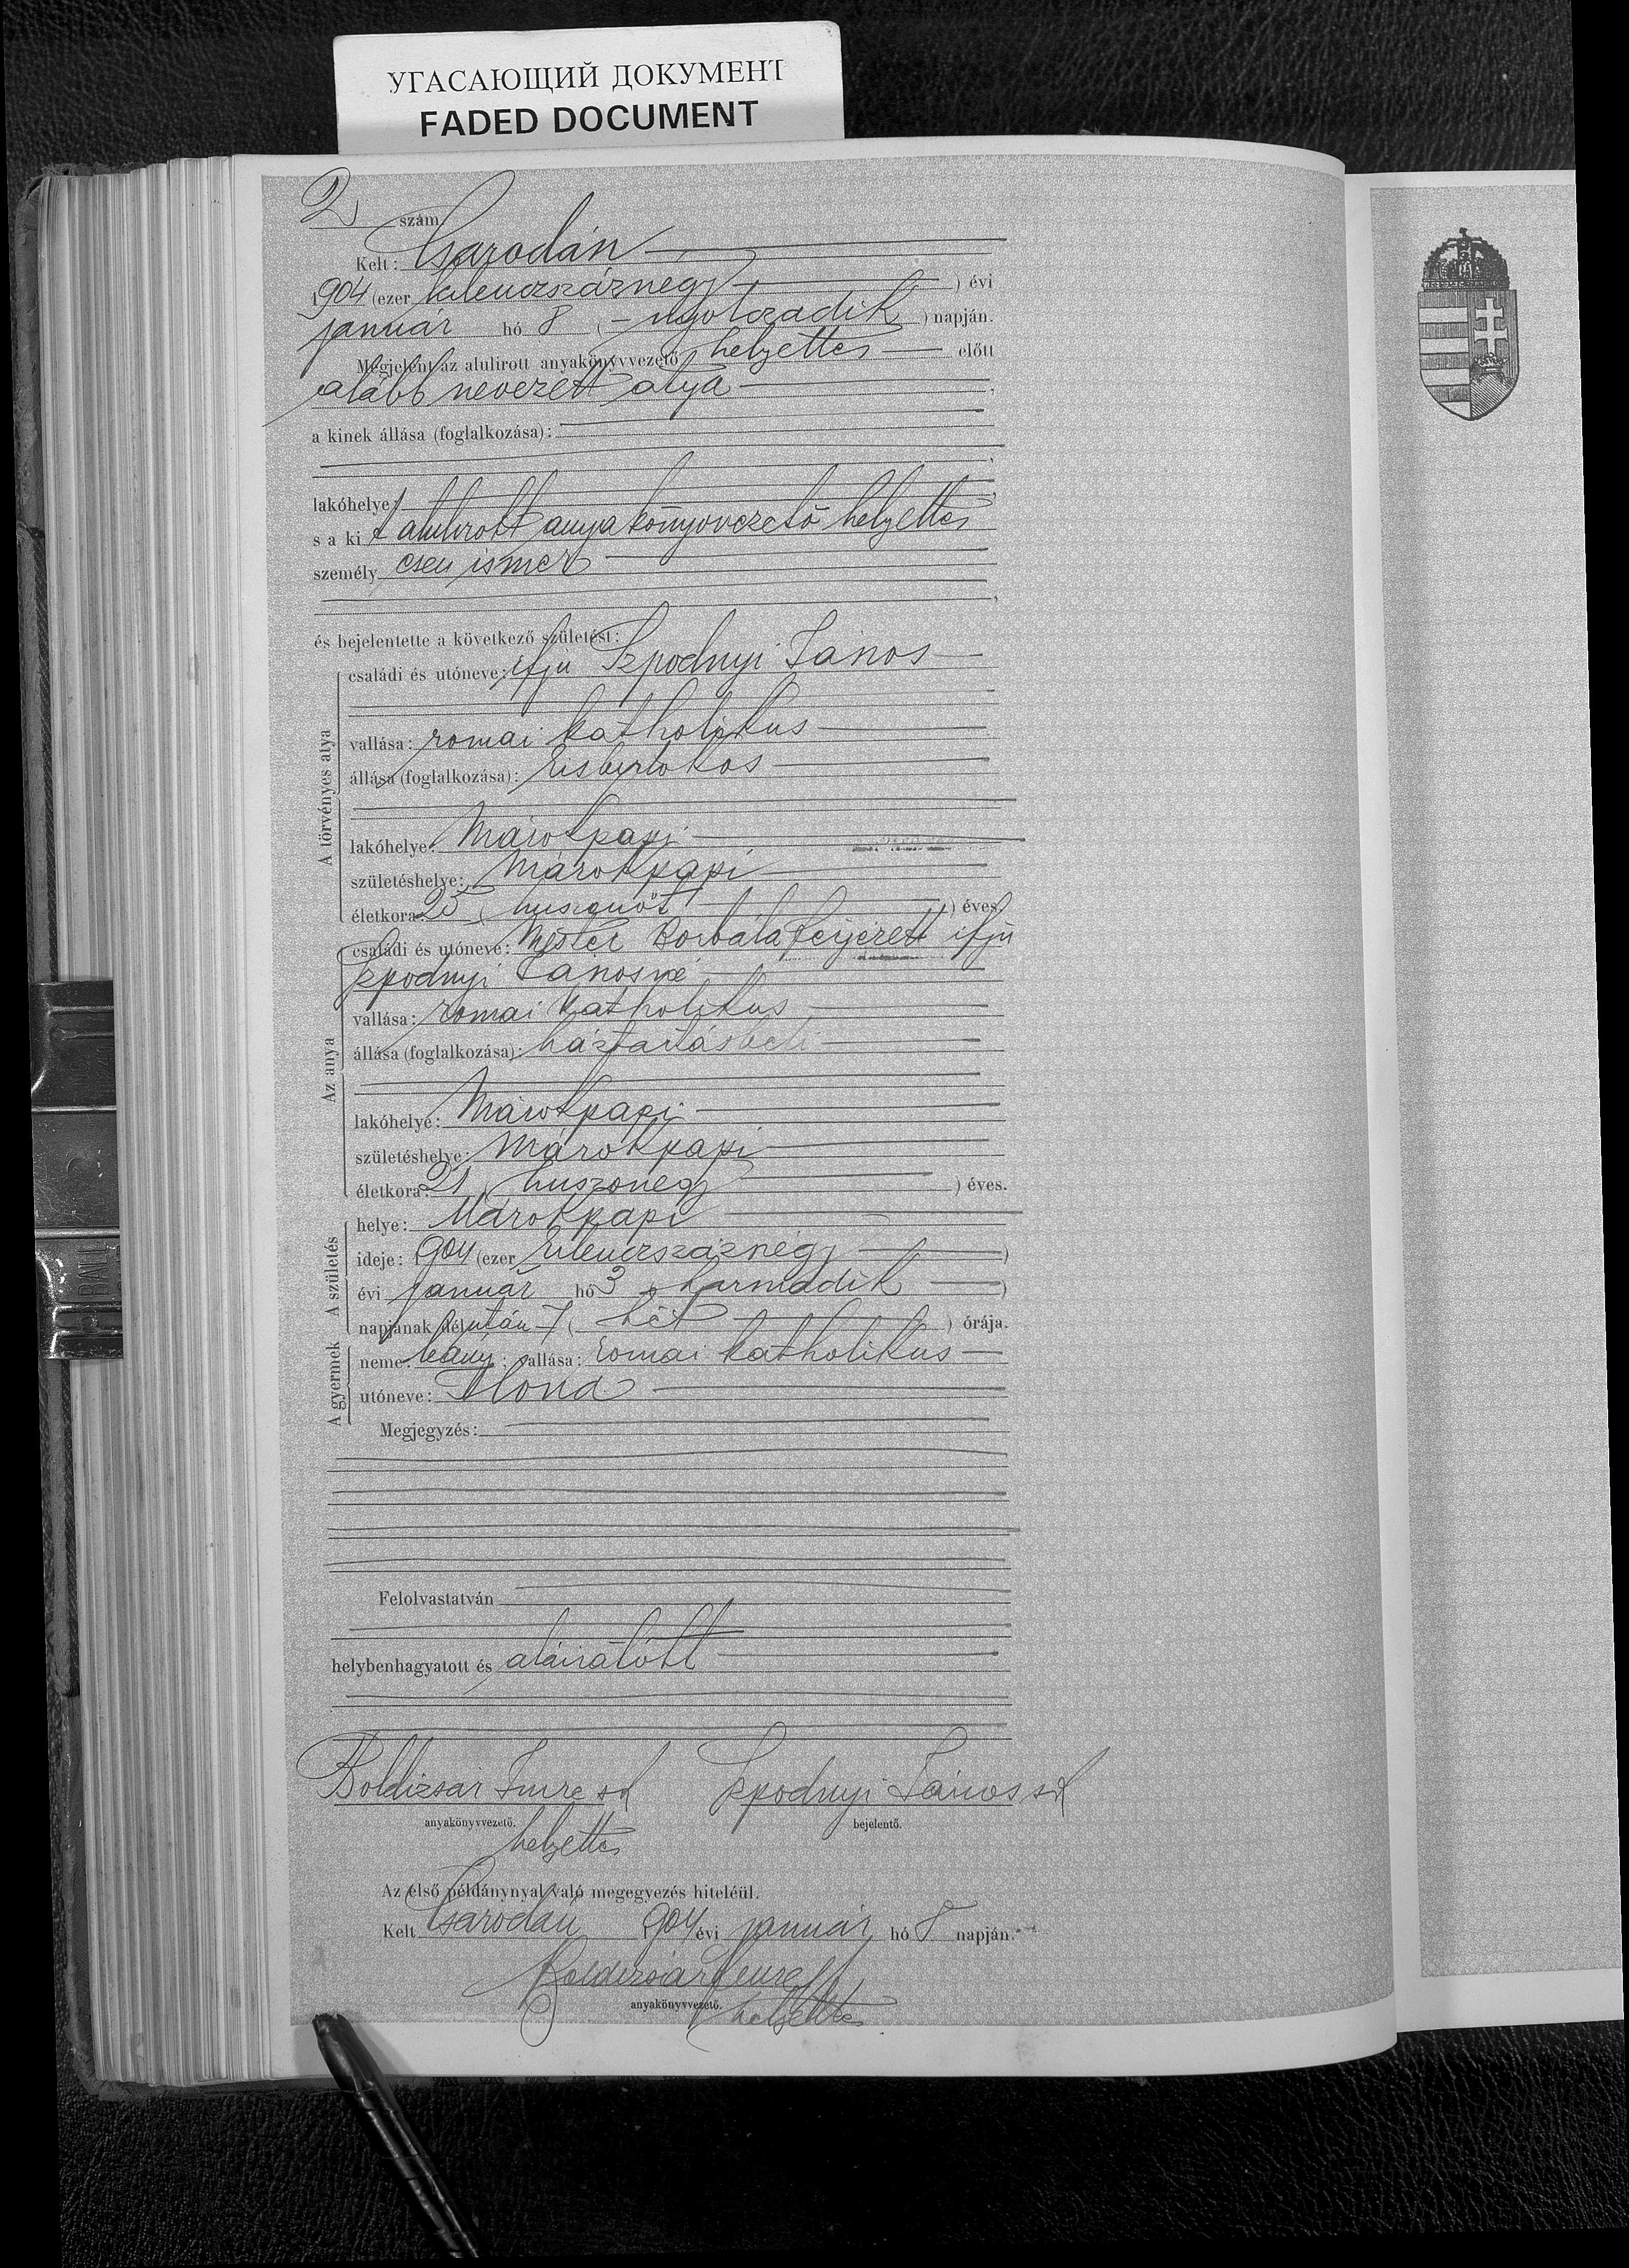 УГАСАЮЩИЙ ДОКУМЕНТ
FADED DOCUMENT
2 szám.
Kelt: Csarodán
1904 (ezer kilenczszáznégy) évi
január hó 8 (nyolczadik) napján.
Megjelent az alulirott anyakönyvvezető helyettes előtt
alább nevezett atya
a kinek állása (foglalkozása):
lakóhelye:
s a kit alulirott anyakönyvvezető helyettes
személyesen ismer
és bejelentette a következő születést:
A törvényes atya
családi és utóneve: ifju Szpodnyi János
vallása: romai katholikus
állása (foglalkozása): kisbirtokos
lakóhelye: Márokpapi
születéshelye: Márokpapi
életkora: 25 (huszonöt) éves.
Az anya
családi és utóneve: Mester Borbála férjezett ifju
Szpodnyi Jánosné
vallása: romai katholikus
állása (foglalkozása): háztartásbeli
lakóhelye: Márokpapi
születéshelye: Márokpapi
életkora: 21 (huszonegy) éves.
A születés
helye: Márokpapi
ideje: 1904 (ezer kilenczszáznégy)
évi január hó 3 (harmadik)
napjának délután 7 (hét) órája.
A gyermek
neme: leány; vallása: romai katholikus
utóneve: Ilona
Megjegyzés:
Felolvastatván
helybenhagyatott és aláiratott
Boldizsár Imre sk Szpodnyi János sk
anyakönyvvezető. bejelentő.
helyettes
Az első példánynyal való megegyezés hiteléül.
Kelt Csarodán 1904 évi január hó 8 napján.
Boldizsár Imre
anyakönyvvezető.
helyettes